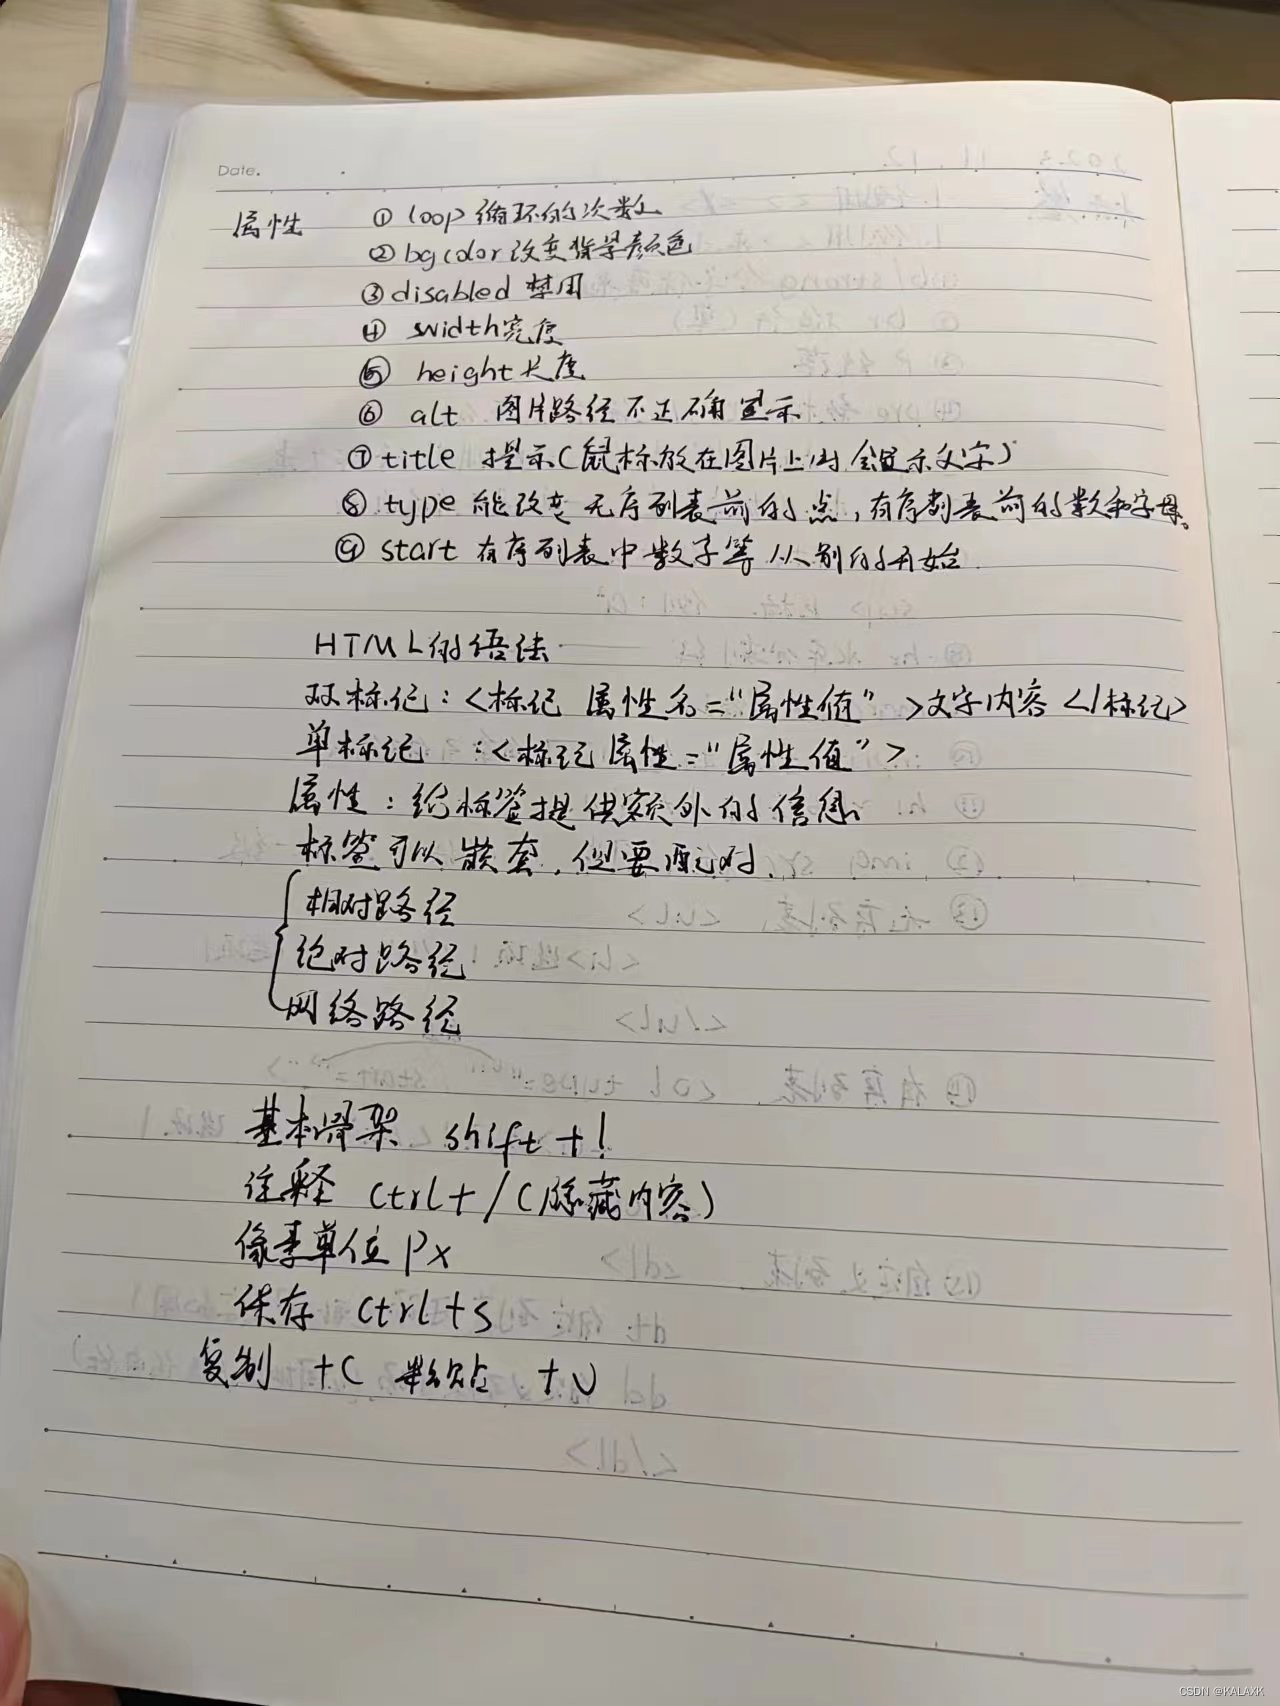 Date.
属性 ① loop 循环的次数
② bgcolor 改变背景颜色
③ disabled 禁用
④ width宽度
⑤ height长度
⑥ alt 图片路径不正确显示
⑦ title 提示(鼠标放在图片上时 会显示文字)
⑧ type 能改变 无序列表前的点,有序列表前的数和字母。
⑨ start 有序列表中数字等从别的开始.
HTML的语法
双标记:<标记 属性名="属性值" >文字内容 </标记>
单标记 :<标记 属性="属性值" >
属性:给标签提供额外的信息
标签可以嵌套,但要配对.
相对路径
绝对路径
网络路径
基本骨架 shift + !
注释 Ctrl + / (隐藏内容)
像素单位 Px
保存 Ctrl+s
复制 +C 粘贴 +V
CSDN @KALAXK